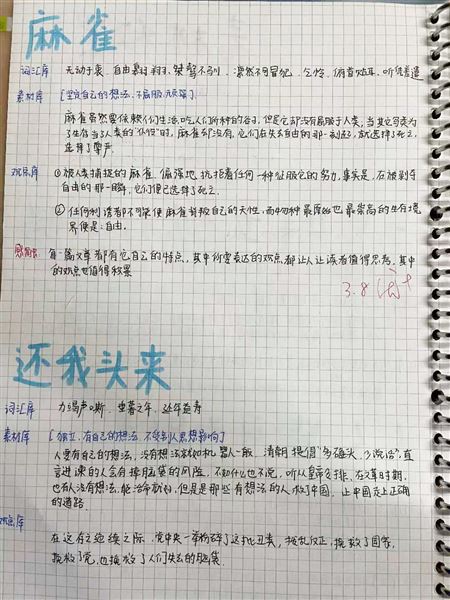 麻雀
词汇库 无动于衷、自由翱翔、桀骜不驯、凛然不可冒犯、乞怜、俯首
素材库 [坚定自己的想法,不屈服,顽强]
麻雀虽然要依赖人们生活,吃人们所种的谷子,但是它却没有屈服于人类,当其它鸟类为
了生存当了人类的"仆役"时,麻雀却没有,它们在失去自由的那一刻起,就选择了死亡,
选择了尊严
观点库 ①被人类捕捉的麻雀,偏强地抗拒着任何一种征服它的努力,事实是,在被剥夺
自由的那一瞬,它们便已选择了死亡。
②任何利诱都不可能使麻雀背叛自己的天性,而动物种最原始也最崇高的生存境
界便是:自由。
每一篇文章都有它自己的特点,其中所要表达的观点都让人让读者值得思考,其中
的观点也值得积累
3.8
还我头来
词汇库 力竭声嘶、垂暮之年、延年益寿
素材库 [独立,有自己的想法,不受别人思想影响]
人要有自己的想法,没有想法就如机器人一般,清朝提倡"多磕头,少说话",直
言进谏的人会有掉脑袋的风险,不如什么也不说,听从皇帝安排,在文革时期,
也有人没有想法,能活命就好,但是是那些有想法的人,救了中国,让中国走上正确
的道路
观点库
在这存亡绝续之际,党中央一举粉碎了这批丑类,拨乱反正,挽救了国家,
挽救了党,也挽救了人们失去的脑袋